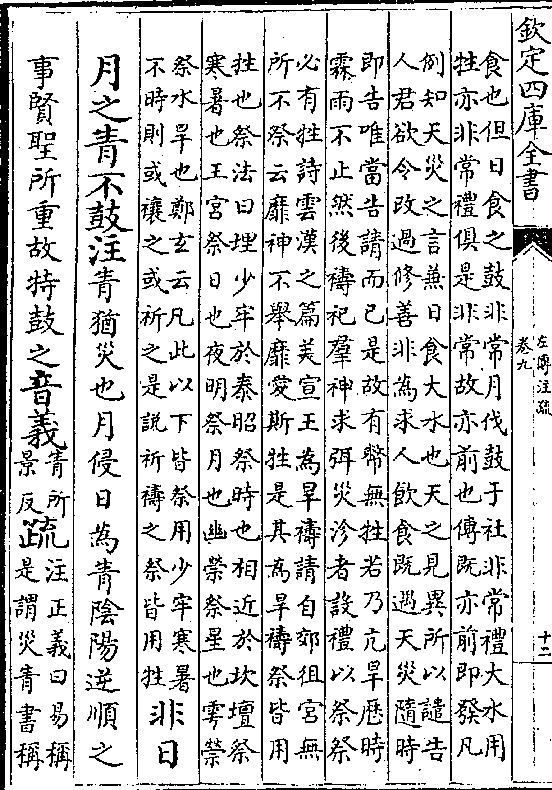 欽定四庫全書
左傳注疏
卷九
十二
食也但日食之鼓非常月伐鼓于社非常禮大水用
牲亦非常禮俱是非常故亦前也傳既亦前即發凡
例知天災之言兼日食大水也天之見異所以譴告
人君欲令改過修善非為求人飲食既遇天災隨時
即告唯當告請而已是故有幣無牲若乃亢旱歷時
霖雨不止然後禱祀羣神求弭災沴者設禮以祭祭
必有牲詩雲漢之篇美宣王為旱禱請自郊徂宮無
所不祭云靡神不舉靡愛斯牲是其為旱禱祭皆用
牲也祭法曰埋少牢於泰昭祭時也相近於坎壇祭
寒暑也王宮祭日也夜明祭月也幽禜祭星也雩禜
祭水旱也鄭玄云凡此以下皆祭用少牢寒暑
不時則或禳之或祈之是說祈禱之祭皆用牲
非日
月之眚不鼓注眚猶災也月侵日為眚陰陽逆順之
事賢聖所重故特鼓之音義眚所景反疏注正義曰易稱是謂災眚書稱